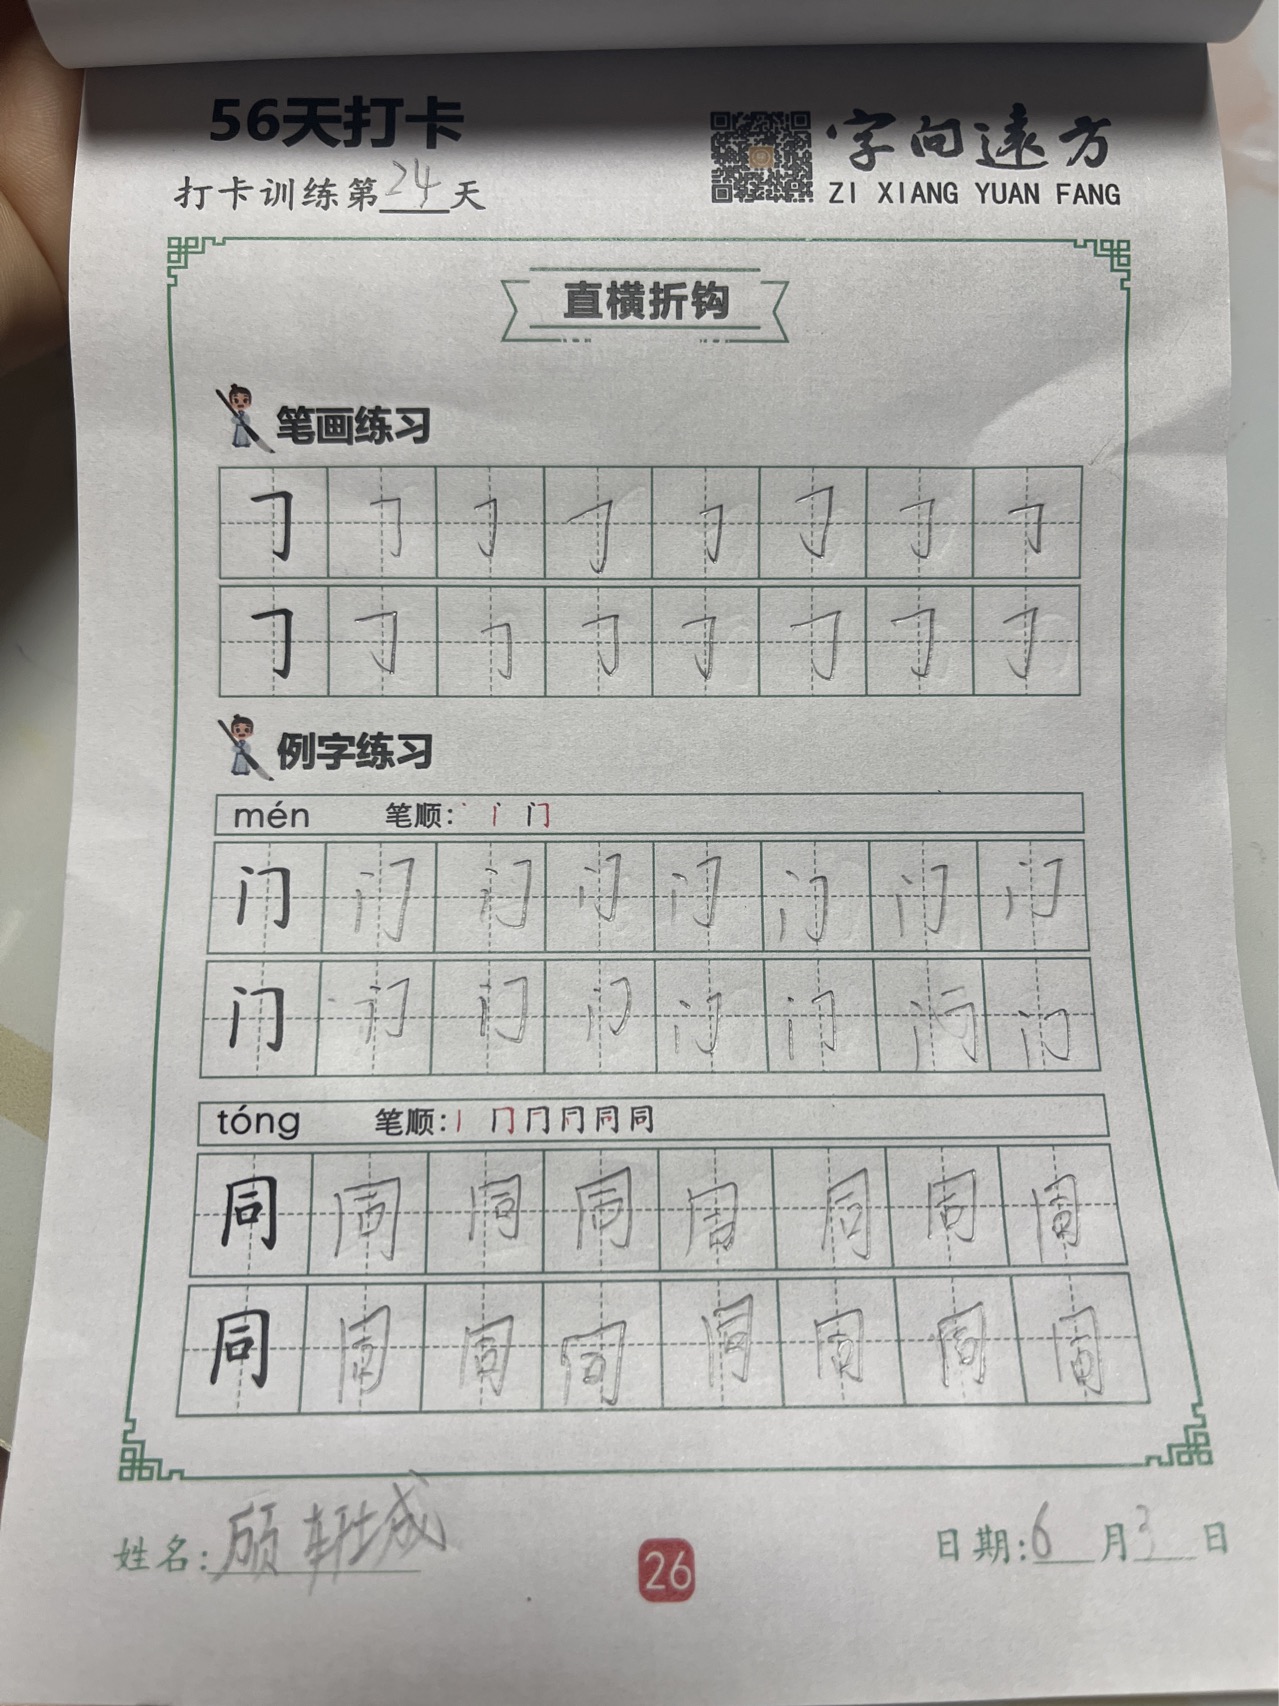 56天打卡
字向遠方
打卡训练第24天
ZI XIANG YUAN FANG
直横折钩
笔画练习
㇆ ㇆ ㇆ ㇆ ㇆ ㇆ ㇆ ㇆
㇆ ㇆ ㇆ ㇆ ㇆ ㇆ ㇆ ㇆
例字练习
mén 笔顺: 丶 门
门 门 门 门 门 门 门 门
门 门 门 门 门 门 门 门
tóng 笔顺: 丨 冂 同 同
同 同 同 同 同 同 同 同
同 同 同 同 同 同 同 同
姓名: 顾轩城
日期: 6月3日
26